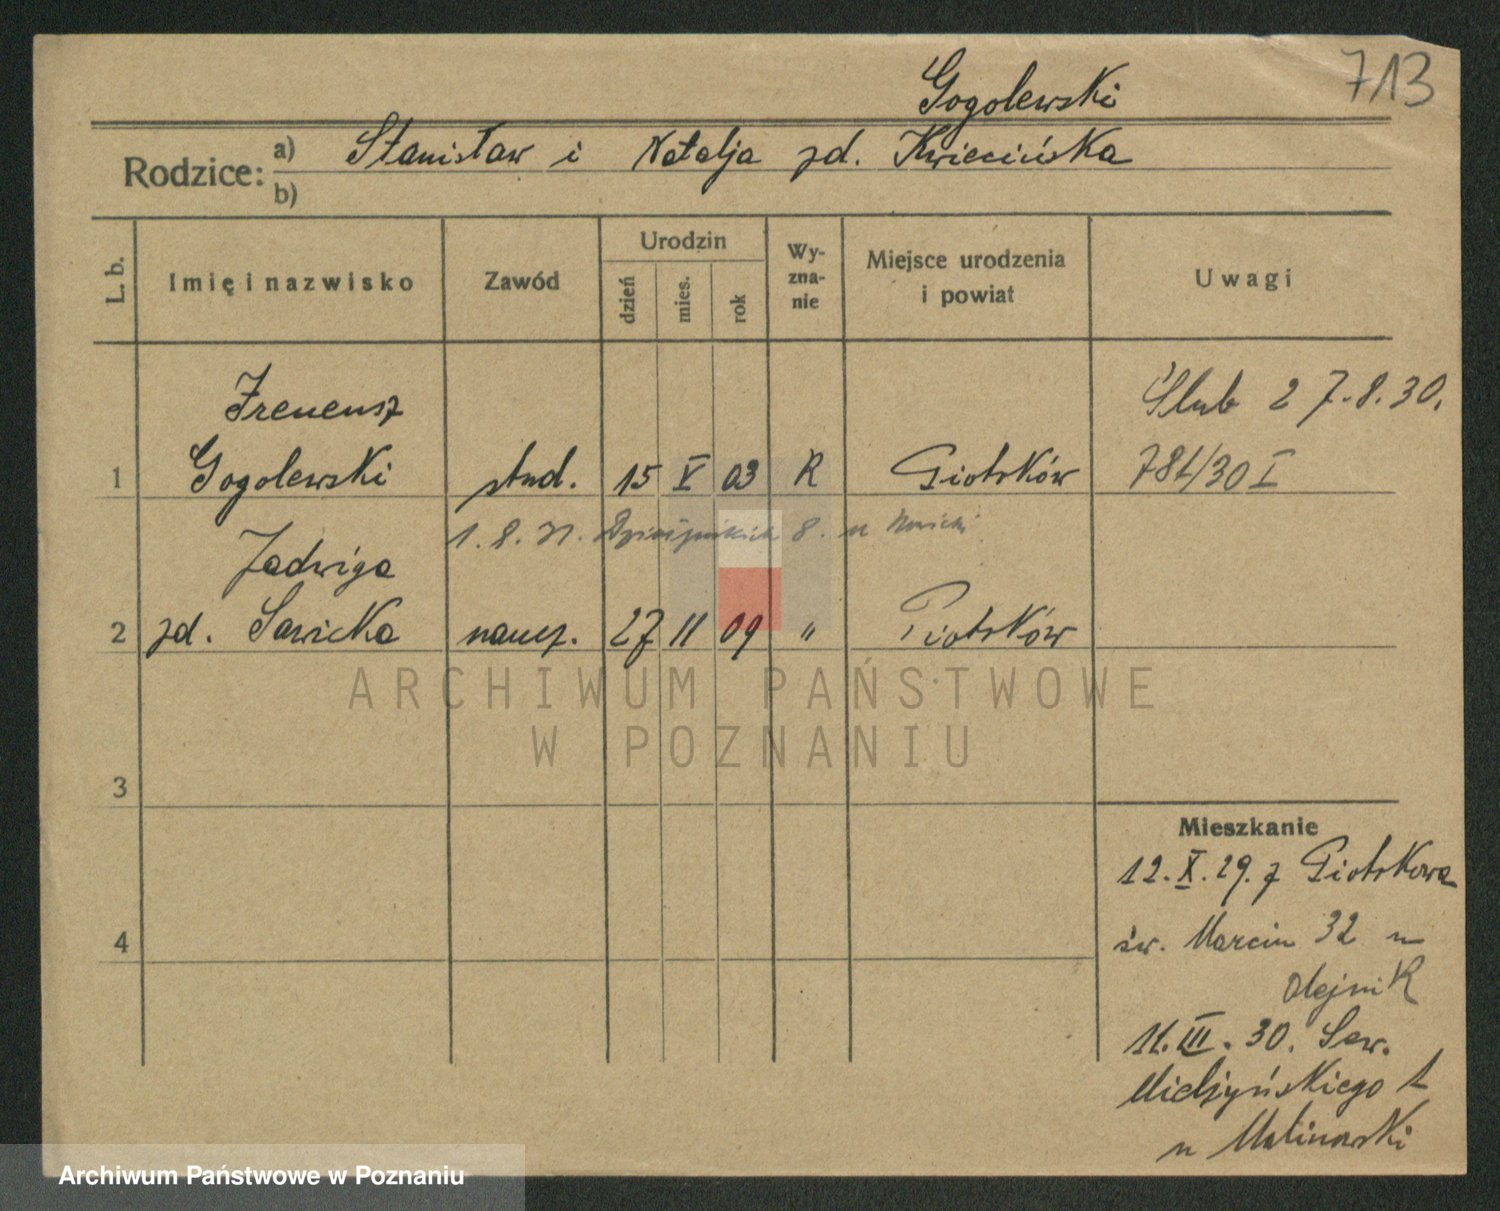 Gogolewski
713
Rodzice: a) Stanisław i Natalja zd. Kwiecińska
b)
L. b. Imię i nazwisko Zawód Urodzin dzień mies. rok Wy-zna-nie Miejsce urodzenia i powiat Uwagi
Ireneusz Ślub 27.8.30.
1 Gogolewski stud. 15 V 03 R Piotrków 781/30 I
1. 8. 31. 8. u
Jadwiga
2 zd. Sawicka naucz. 27 11 09 " Piotrków
ARCHIWUM PAŃSTWOWE
W POZNANIU
3
Mieszkanie
12. X. 29. z Piotrkowa
4
św. Marcin 32 u
Olejnik
11. III. 30. Sew.
Mielżyńskiego 1
u Malinowski
Archiwum Państwowe w Poznaniu